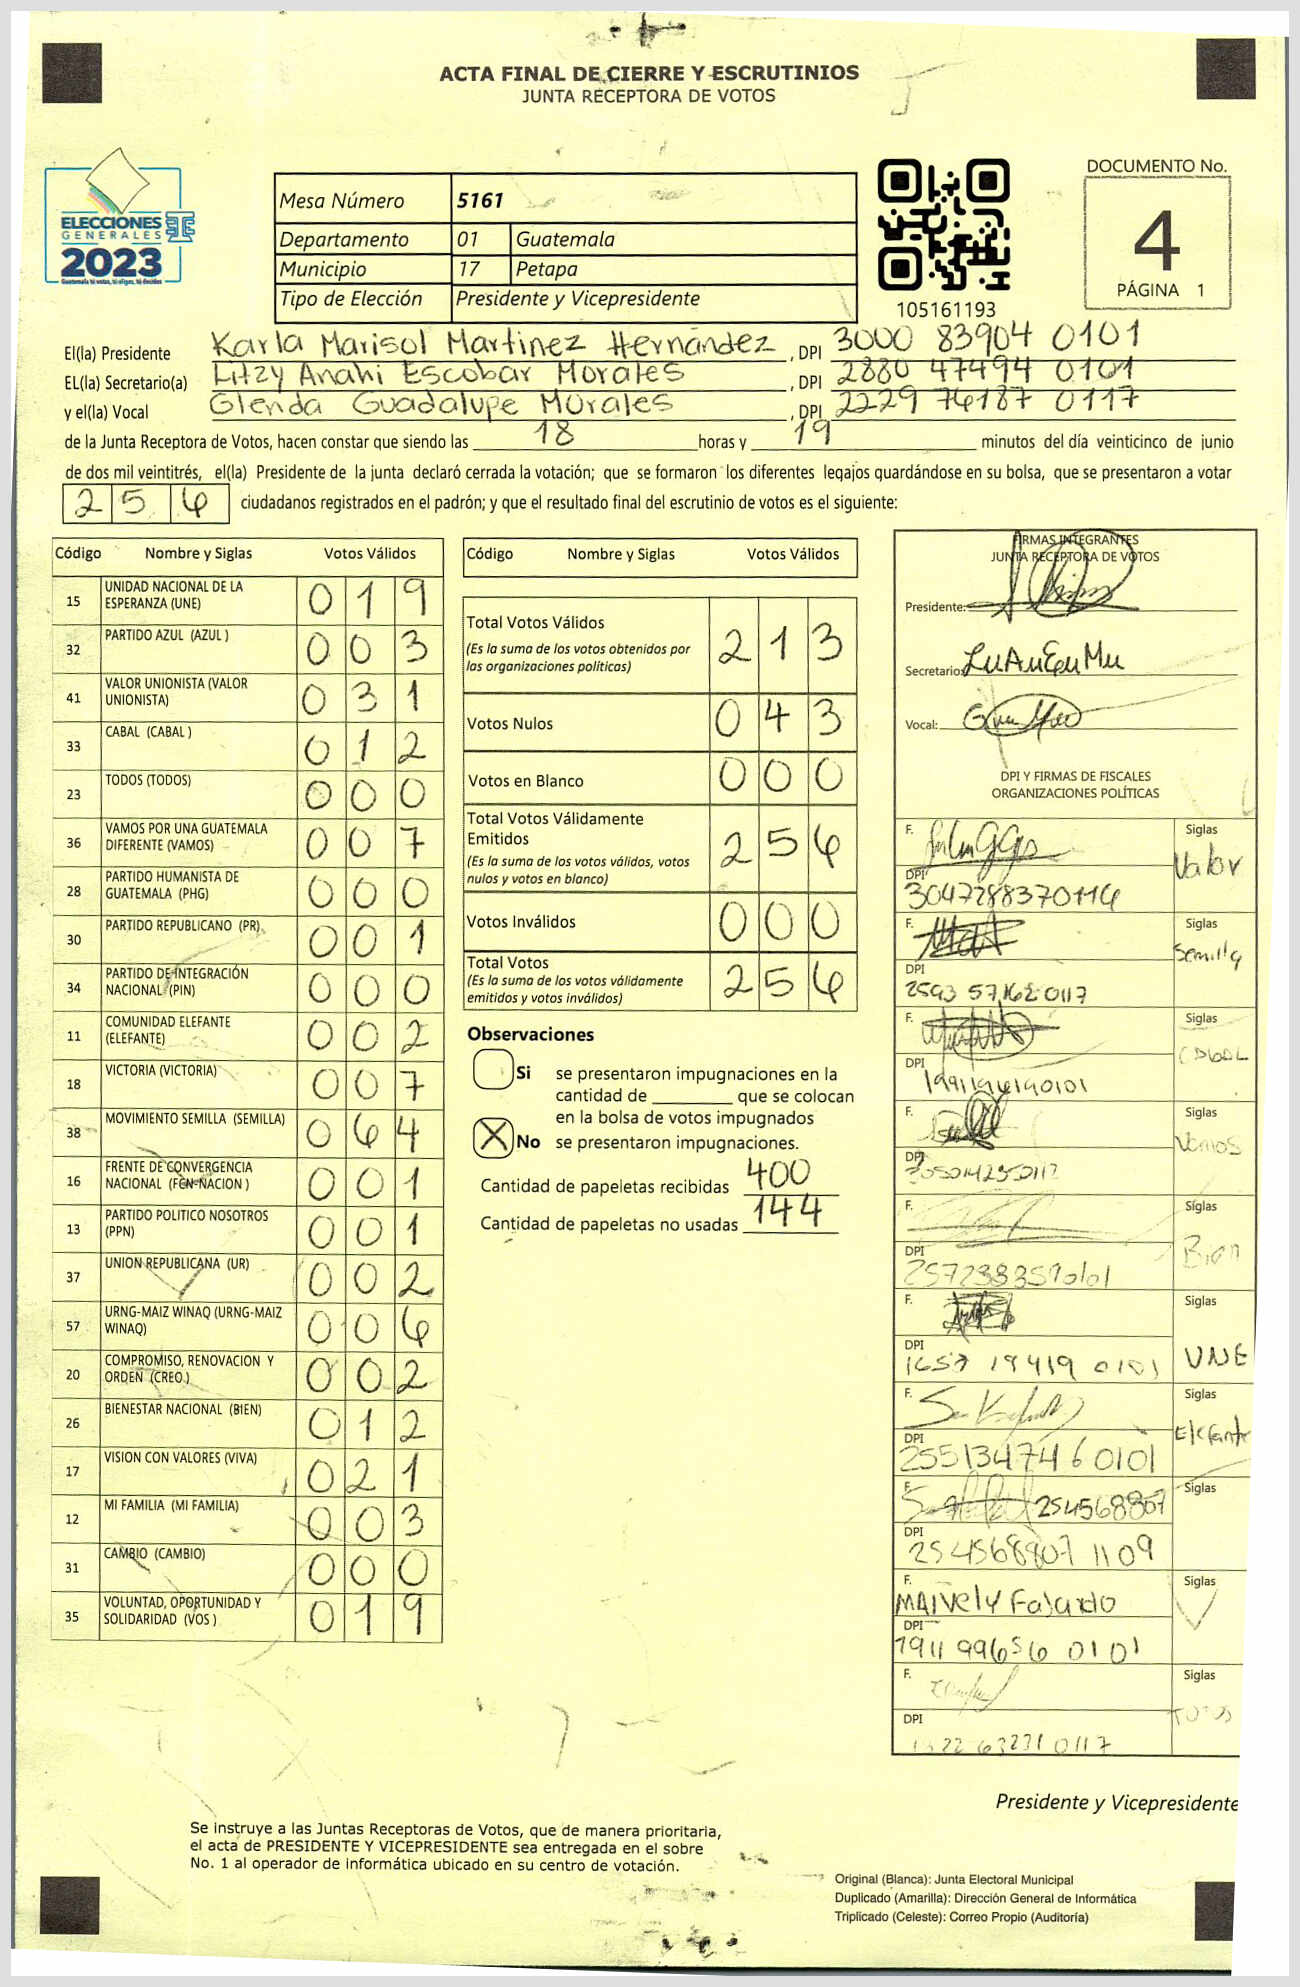 ACTA FINAL DE CIERRE Y ESCRUTINIOS
JUNTA RECEPTORA DE VOTOS
ELECCIONES
GENERALES
2023
Guatemala tú votas, tú eliges, tú decides
Mesa Número 5161
Departamento 01 Guatemala
Municipio 17 Petapa
Tipo de Elección Presidente y Vicepresidente
105161193
DOCUMENTO No.
4
PÁGINA 1
El(la) Presidente Karla Marisol Martinez Hernández , DPI 3000 83904 0101
EL(la) Secretario(a) Litzy Anahi Escobar Morales , DPI 2880 47494 0101
y el(la) Vocal Glenda Guadalupe Morales , DPI 2229 76187 0117
de la Junta Receptora de Votos, hacen constar que siendo las 18 horas y 19 minutos del día veinticinco de junio
de dos mil veintitrés, el(la) Presidente de la junta declaró cerrada la votación; que se formaron los diferentes legajos guardándose en su bolsa, que se presentaron a votar
256 ciudadanos registrados en el padrón; y que el resultado final del escrutinio de votos es el siguiente:
Código Nombre y Siglas Votos Válidos
15 UNIDAD NACIONAL DE LA ESPERANZA (UNE) 019
32 PARTIDO AZUL (AZUL ) 003
41 VALOR UNIONISTA (VALOR UNIONISTA) 031
33 CABAL (CABAL ) 012
23 TODOS (TODOS) 000
36 VAMOS POR UNA GUATEMALA DIFERENTE (VAMOS) 007
28 PARTIDO HUMANISTA DE GUATEMALA (PHG) 000
30 PARTIDO REPUBLICANO (PR) 001
34 PARTIDO DE INTEGRACIÓN NACIONAL (PIN) 000
11 COMUNIDAD ELEFANTE (ELEFANTE) 002
18 VICTORIA (VICTORIA) 007
38 MOVIMIENTO SEMILLA (SEMILLA) 064
16 FRENTE DE CONVERGENCIA NACIONAL (FCN-NACION ) 001
13 PARTIDO POLITICO NOSOTROS (PPN) 001
37 UNION REPUBLICANA (UR) 002
57 URNG-MAIZ WINAQ (URNG-MAIZ WINAQ) 006
20 COMPROMISO, RENOVACION Y ORDEN (CREO ) 002
26 BIENESTAR NACIONAL (BIEN) 012
17 VISION CON VALORES (VIVA) 021
12 MI FAMILIA (MI FAMILIA) 003
31 CAMBIO (CAMBIO) 000
35 VOLUNTAD, OPORTUNIDAD Y SOLIDARIDAD (VOS ) 019
Código Nombre y Siglas Votos Válidos
Total Votos Válidos 213
(Es la suma de los votos obtenidos por
las organizaciones políticas)
Votos Nulos 043
Votos en Blanco 000
Total Votos Válidamente
Emitidos 256
(Es la suma de los votos válidos, votos
nulos y votos en blanco)
Votos Inválidos 000
Total Votos 256
(Es la suma de los votos válidamente
emitidos y votos inválidos)
Observaciones
Si se presentaron impugnaciones en la
cantidad de ________ que se colocan
en la bolsa de votos impugnados
X No se presentaron impugnaciones.
Cantidad de papeletas recibidas 400
Cantidad de papeletas no usadas 144
FIRMAS INTEGRANTES
JUNTA RECEPTORA DE VOTOS
Presidente:
Secretario:
Vocal:
DPI Y FIRMAS DE FISCALES
ORGANIZACIONES POLÍTICAS
F. Siglas
Valor
DPI
3047288370116
F. Siglas
Semilla
DPI
2593 57162 0117
F. Siglas
CABAL
DPI
F. Siglas
Vamos
DPI
F. Siglas
Bien
DPI
2572383590101
F. Siglas
UNE
DPI
1657 19419 0101
F. Siglas
Elefante
DPI
2551347460101
F. 254568807 Siglas
DPI
254568807 1109
F. Maively Fajardo Siglas
V
DPI
1911 99656 0101
F. Siglas
Todos
DPI
63231 0117
Presidente y Vicepresidente
Se instruye a las Juntas Receptoras de Votos, que de manera prioritaria,
el acta de PRESIDENTE Y VICEPRESIDENTE sea entregada en el sobre
No. 1 al operador de informática ubicado en su centro de votación.
Original (Blanca): Junta Electoral Municipal
Duplicado (Amarilla): Dirección General de Informática
Triplicado (Celeste): Correo Propio (Auditoría)